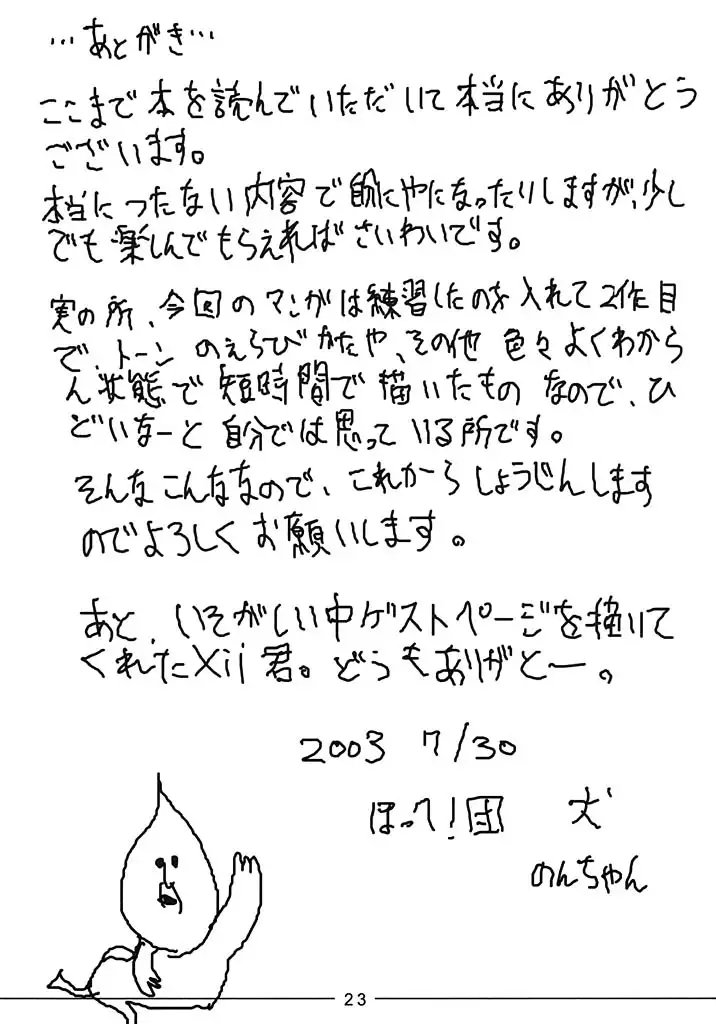 …あとがき…
ここまで本を読んでいただいて本当にありがとう
ございます。
本当につたない内容で
になったりしますが、少し
でも楽しんでもらえればさいわいです。
実の所、今回のマンガは練習したのを入れて2作目
で、トーンのえらびかたや、その他 色々よくわから
ん状態で短時間で描いたものなので、ひ
どいなーと自分では思っている所です。
そんなこんななので、これからしょうじんします
のでよろしくお願いします。
あと、いそがしい中ゲストページを描いて
くれたXii君。どうもありがとー。
2003 7/30
ほって!団 犬
のんちゃん
23